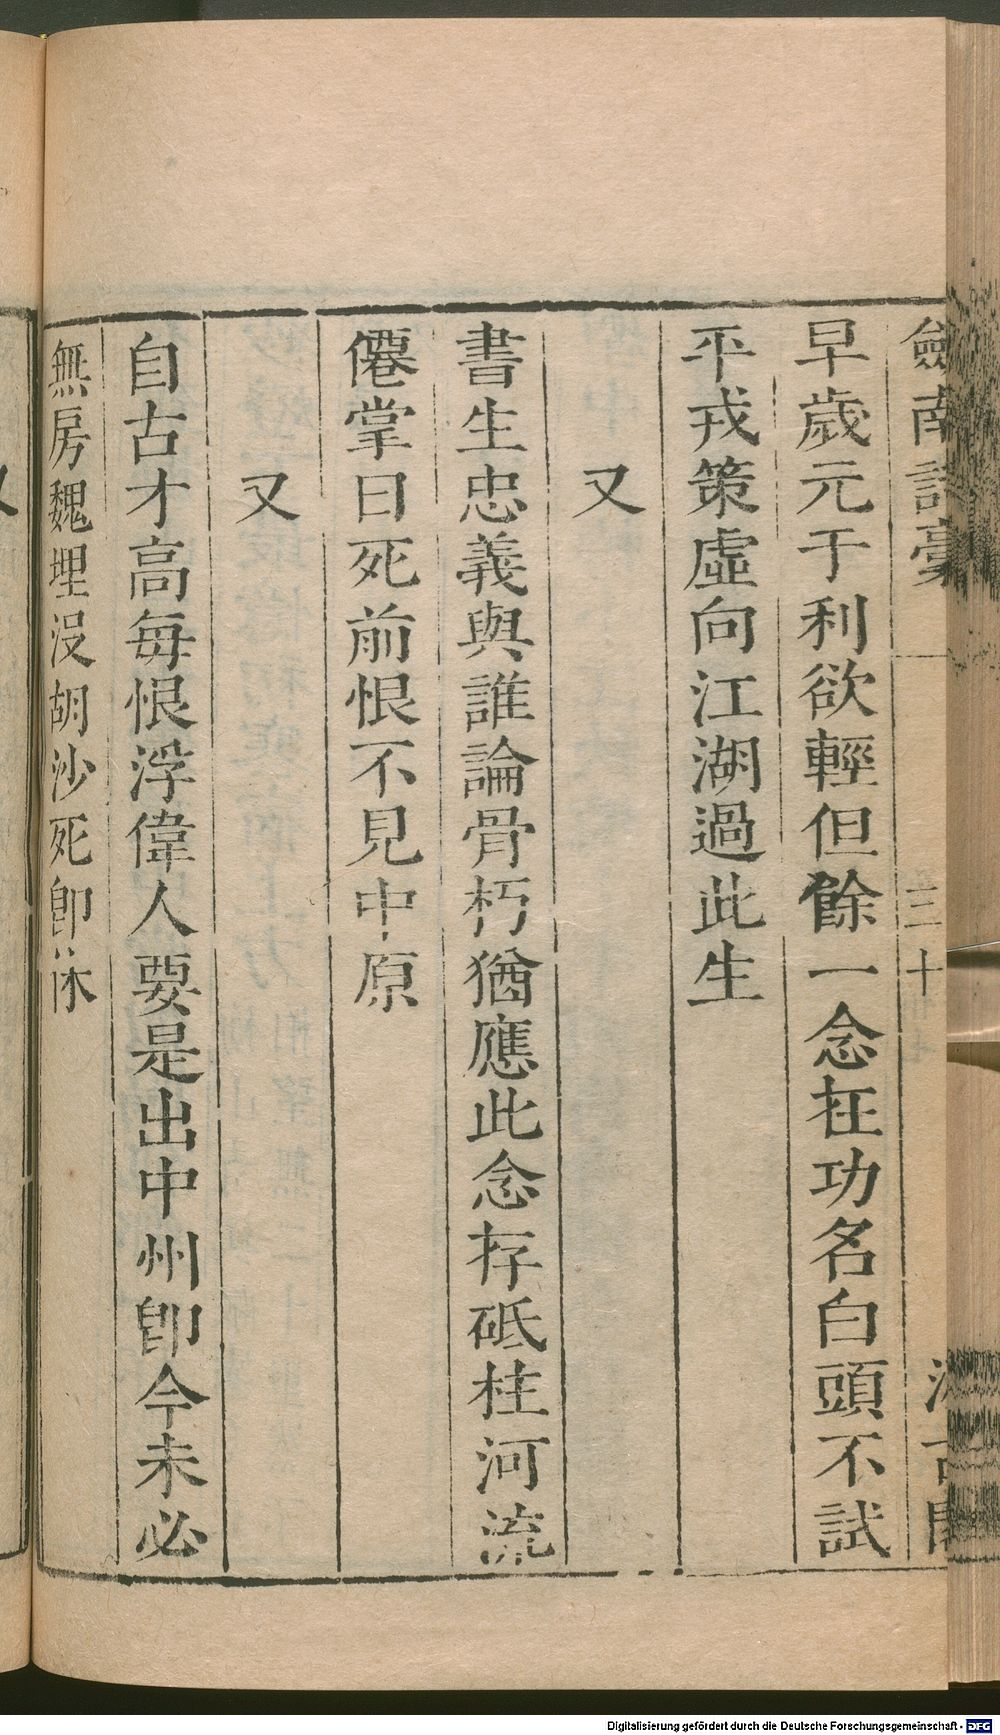 劒南詩稾
三十
汲古閣
早歲元于利欲輕但餘一念在功名白頭不試
平戎策虛向江湖過此生
又
書生忠義與誰論骨朽猶應此念存砥柱河流
僊掌日死前恨不見中原
又
自古才高每恨浮偉人要是出中州即今未必
無房魏埋沒胡沙死即休
又
Digitalisierung gefördert durch die Deutsche Forschungsgemeinschaft - DFG